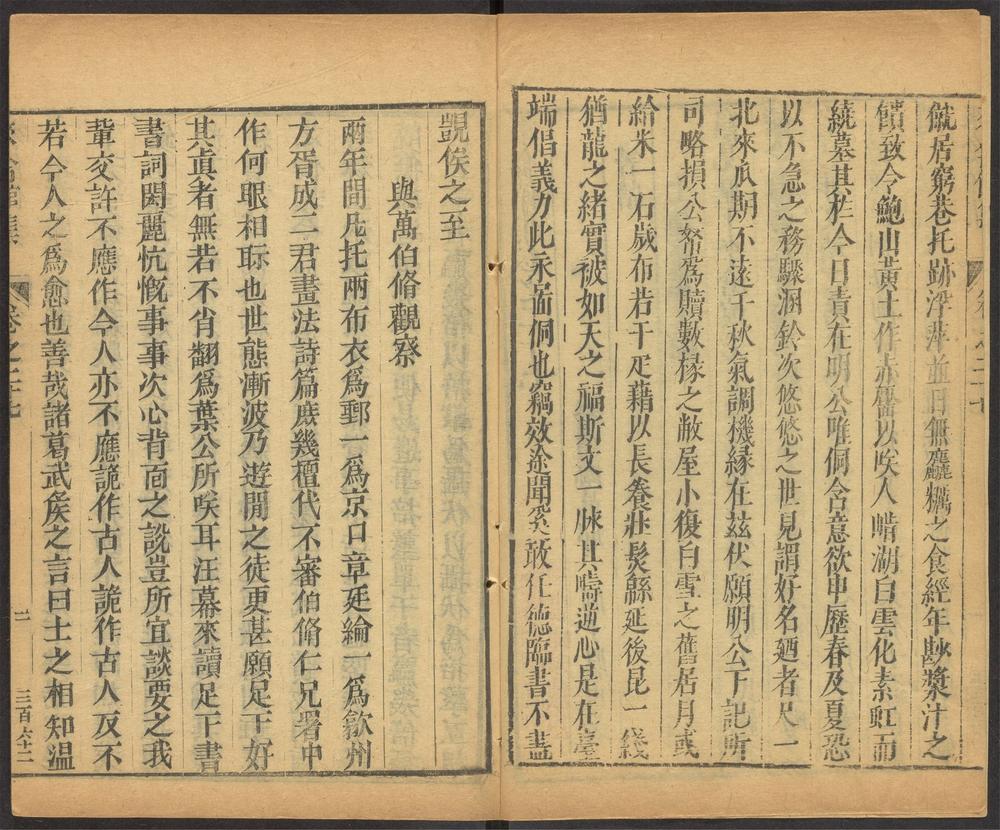 僦居窮巷托跡浮萍並日無麤糲之食經年尠漿汁之
饋致令鮑山黃土作赤鬣以唉人鵲湖白雲化素虹而
繞墓其在今日責在明公唯侗含意欲申歷春及夏恐
以不急之務驟溷鈴次悠悠之世見謂好名廼者尺一
北來瓜期不遠千秋氣調機緣在茲伏願明公下記所
司略損公帑為贖數椽之敝屋小復白雪之舊居月或
給米一石歲布若干疋藉以長養壯髮緜延後昆一綫
猶龍之緒實被如天之福斯文一脉其疇逆心是在臺
端倡義力此永啚侗也竊效塗聞奚敢任德臨書不盡
覬俟之至
與萬伯脩觀察
兩年間凡托兩布衣為郵一為京口章廷綸一為歙州
方胥成二君畫法詩篇庶幾擅代不審伯脩仁兄署中
作何眼相眎也世態漸波乃遊閒之徒更甚願足下好
其真者無若不肖翻為葉公所唉耳汪幕來讀足下書
書詞閎麗忼慨事事次心背面之說豈所宜談要之我
輩交許不應作今人亦不應詭作古人詭作古人反不
若今人之為愈也善哉諸葛武侯之言曰士之相知溫
卷之二十七
二
三百六十二